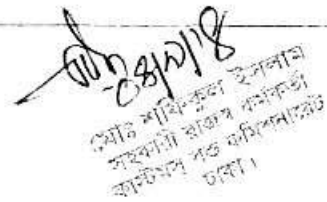 মোঃ শফিকুল ইসলাম
সহকারী রাজস্ব কর্মকর্তা
কাস্টমস্ বন্ড কমিশনারেট
ঢাকা।